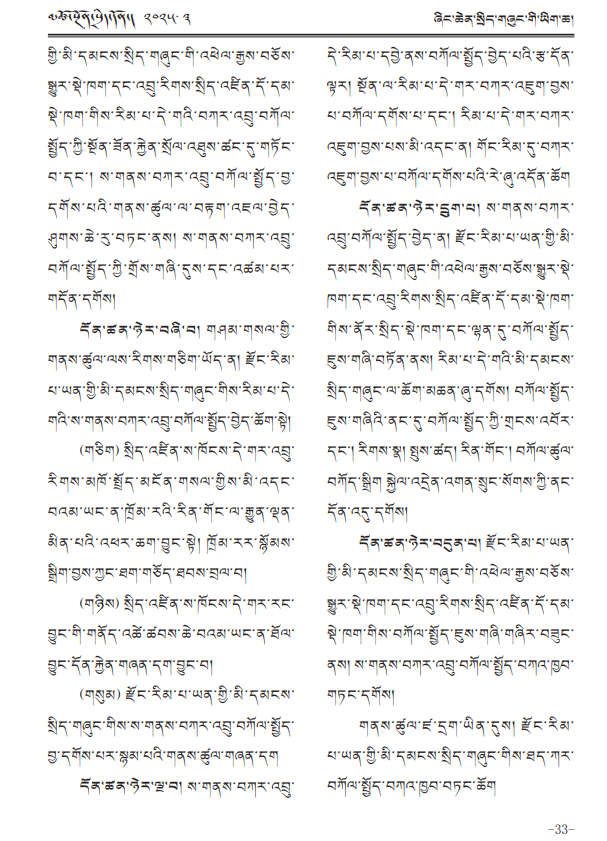 ཞིང་ཆེན་སྲིད་གཞུང་གི་ཡིག་ཆ།
གྱི་མི་དམངས་སྲིད་གཞུང་གི་འཕེལ་རྒྱས་བཅོས་
སྒྱུར་སྡེ་ཁག་དང་འབྲུ་རིགས་སྲིད་འཛིན་དོ་དམ་
སྡེ་ཁག་གིས་རིམ་པ་དེ་གའི་བཀར་འབྲུ་བཀོལ་
སྤྱོད་ཀྱི་སྔོན་ཟོན་རྐྱེན་སྲོལ་འཐུས་ཚང་དུ་གཏོང་
བ་དང་། ས་གནས་བཀར་འབྲུ་བཀོལ་སྤྱོད་བྱ་
དགོས་པའི་གནས་ཚུལ་ལ་བརྟག་འཇལ་བྱེད་
ཤུགས་ཆེ་རུ་བཏང་ནས། ས་གནས་བཀར་འབྲུ་
བཀོལ་སྤྱོད་ཀྱི་གྲོས་གཞི་དུས་དང་འཚམ་པར་
གདོན་དགོས།
དོན་ཚན་ཉེར་བཞི་བ། གཤམ་གསལ་གྱི་
གནས་ཚུལ་ལས་རིགས་གཅིག་ཡོད་ན། རྫོང་རིམ་
པ་ཡན་གྱི་མི་དམངས་སྲིད་གཞུང་གིས་རིམ་པ་དེ་
གའི་ས་གནས་བཀར་འབྲུ་བཀོལ་སྤྱོད་བྱེད་ཆོག་སྟེ།
(གཅིག) སྲིད་འཛིན་ས་ཁོངས་དེ་གར་འབྲུ་
རིགས་མཁོ་སྤྲོད་མངོན་གསལ་གྱིས་མི་འདང་
བའམ་ཡང་ན་ཁྲོམ་རའི་རིན་གོང་ལ་རྒྱུན་ལྡན་
མིན་པའི་འཕར་ཆག་བྱུང་སྟེ། ཁྲོམ་རར་སྙོམས་
སྒྲིག་བྱས་ཀྱང་ཐག་གཅོད་ཐབས་བྲལ་བ།
(གཉིས) སྲིད་འཛིན་ས་ཁོངས་དེ་གར་རང་
བྱུང་གི་གནོད་འཚེ་ཚབས་ཆེ་བའམ་ཡང་ན་ཐོལ་
བྱུང་དོན་རྐྱེན་གཞན་དག་བྱུང་བ།
(གསུམ) རྫོང་རིམ་པ་ཡན་གྱི་མི་དམངས་
སྲིད་གཞུང་གིས་ས་གནས་བཀར་འབྲུ་བཀོལ་སྤྱོད་
བྱ་དགོས་པར་སྙམ་པའི་གནས་ཚུལ་གཞན་དག
དོན་ཚན་ཉེར་ལྔ་བ། ས་གནས་བཀར་འབྲུ་
དེ་རིམ་པ་དབྱེ་ནས་བཀོལ་སྤྱོད་བྱེད་པའི་རྩ་དོན་
ལྟར། སྔོན་ལ་རིམ་པ་དེ་གར་བཀར་འཇུག་བྱས་
པ་བཀོལ་དགོས་པ་དང་། རིམ་པ་དེ་གར་བཀར་
འཇུག་བྱས་པས་མི་འདང་ན། གོང་རིམ་དུ་བཀར་
འཇུག་བྱས་པ་བཀོལ་དགོས་པའི་རེ་ཞུ་འདོན་ཆོག
དོན་ཚན་ཉེར་དྲུག་པ། ས་གནས་བཀར་
འབྲུ་བཀོལ་སྤྱོད་བྱེད་ན། རྫོང་རིམ་པ་ཡན་གྱི་མི་
དམངས་སྲིད་གཞུང་གི་འཕེལ་རྒྱས་བཅོས་སྒྱུར་སྡེ་
ཁག་དང་འབྲུ་རིགས་སྲིད་འཛིན་དོ་དམ་སྡེ་ཁག་
གིས་ནོར་སྲིད་སྡེ་ཁག་དང་ལྷན་དུ་བཀོལ་སྤྱོད་
ཇུས་གཞི་བཏོན་ནས། རིམ་པ་དེ་གའི་མི་དམངས་
སྲིད་གཞུང་ལ་ཆོག་མཆན་ཞུ་དགོས། བཀོལ་སྤྱོད་
ཇུས་གཞིའི་ནང་དུ་བཀོལ་སྤྱོད་ཀྱི་གྲངས་འབོར་
དང་། རིགས་སྣ། སྤུས་ཚད། རིན་གོང་། བཀོལ་ཚུལ་
བཀོད་སྒྲིག སྐྱེལ་འདྲེན་འགན་སྲུང་སོགས་ཀྱི་ནང་
དོན་འདུ་དགོས།
དོན་ཚན་ཉེར་བདུན་པ། རྫོང་རིམ་པ་ཡན་
གྱི་མི་དམངས་སྲིད་གཞུང་གི་འཕེལ་རྒྱས་བཅོས་
སྒྱུར་སྡེ་ཁག་དང་འབྲུ་རིགས་སྲིད་འཛིན་དོ་དམ་
སྡེ་ཁག་གིས་བཀོལ་སྤྱོད་ཇུས་གཞི་གཞིར་བཟུང་
ནས། ས་གནས་བཀར་འབྲུ་བཀོལ་སྤྱོད་བཀའ་ཁྱབ་
གཏང་དགོས།
གནས་ཚུལ་ཛ་དྲག་ཡིན་དུས། རྫོང་རིམ་
པ་ཡན་གྱི་མི་དམངས་སྲིད་གཞུང་གིས་ཐད་ཀར་
བཀོལ་སྤྱོད་བཀའ་ཁྱབ་བཏང་ཆོག
-33-